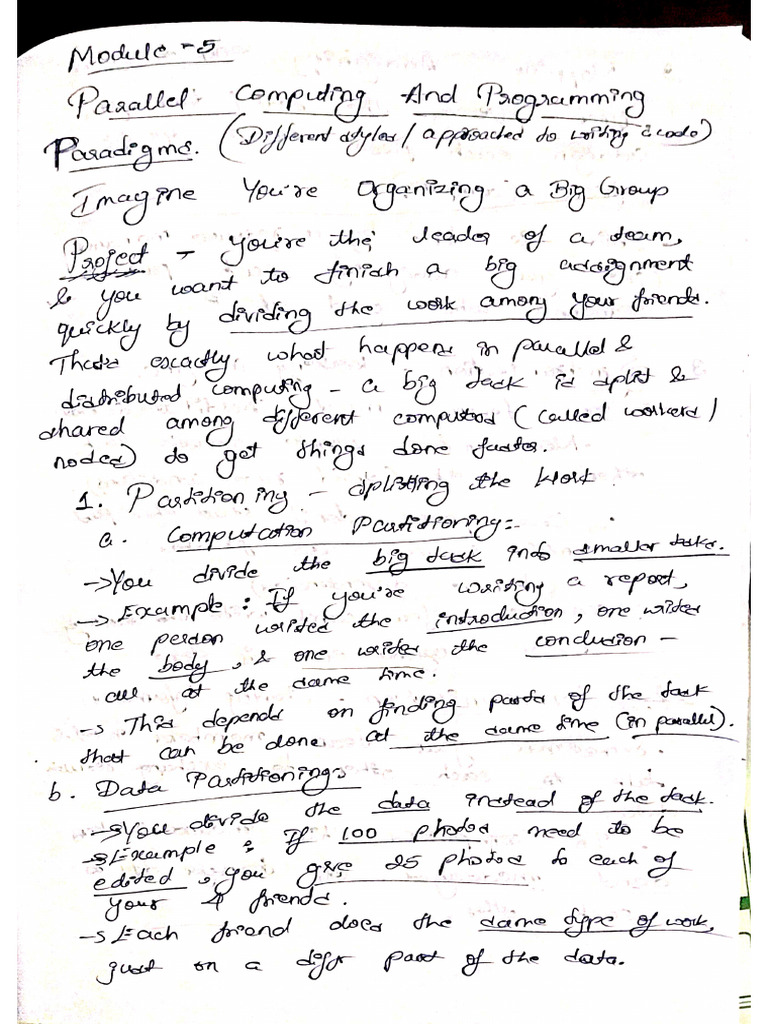 Module - 5
Parallel Computing And Programming
Paradigms. (Different styles / approaches to writing code)
Imagine You're Organizing a Big Group
Project - You're the leader of a team,
& you want to finish a big assignment
quickly by dividing the work among your friends.
That's exactly what happens in parallel &
distributed computing - a big task is split &
shared among different computers (called workers /
nodes) to get things done faster.
1. Partitioning - splitting the work
a. Computation Partitioning:-
→ You divide the big task into smaller tasks.
→ Example : If you're writing a report,
one person writes the introduction, one writes
the body, & one writes the conclusion -
all at the same time.
→ This depends on finding parts of the task
that can be done at the same time (in parallel).
b. Data Partitioning:
→ You divide the data instead of the task.
→ Example : If 100 photos need to be
edited, you give 25 photos to each of
your 4 friends.
→ Each friend does the same type of work,
just on a diff part of the data.